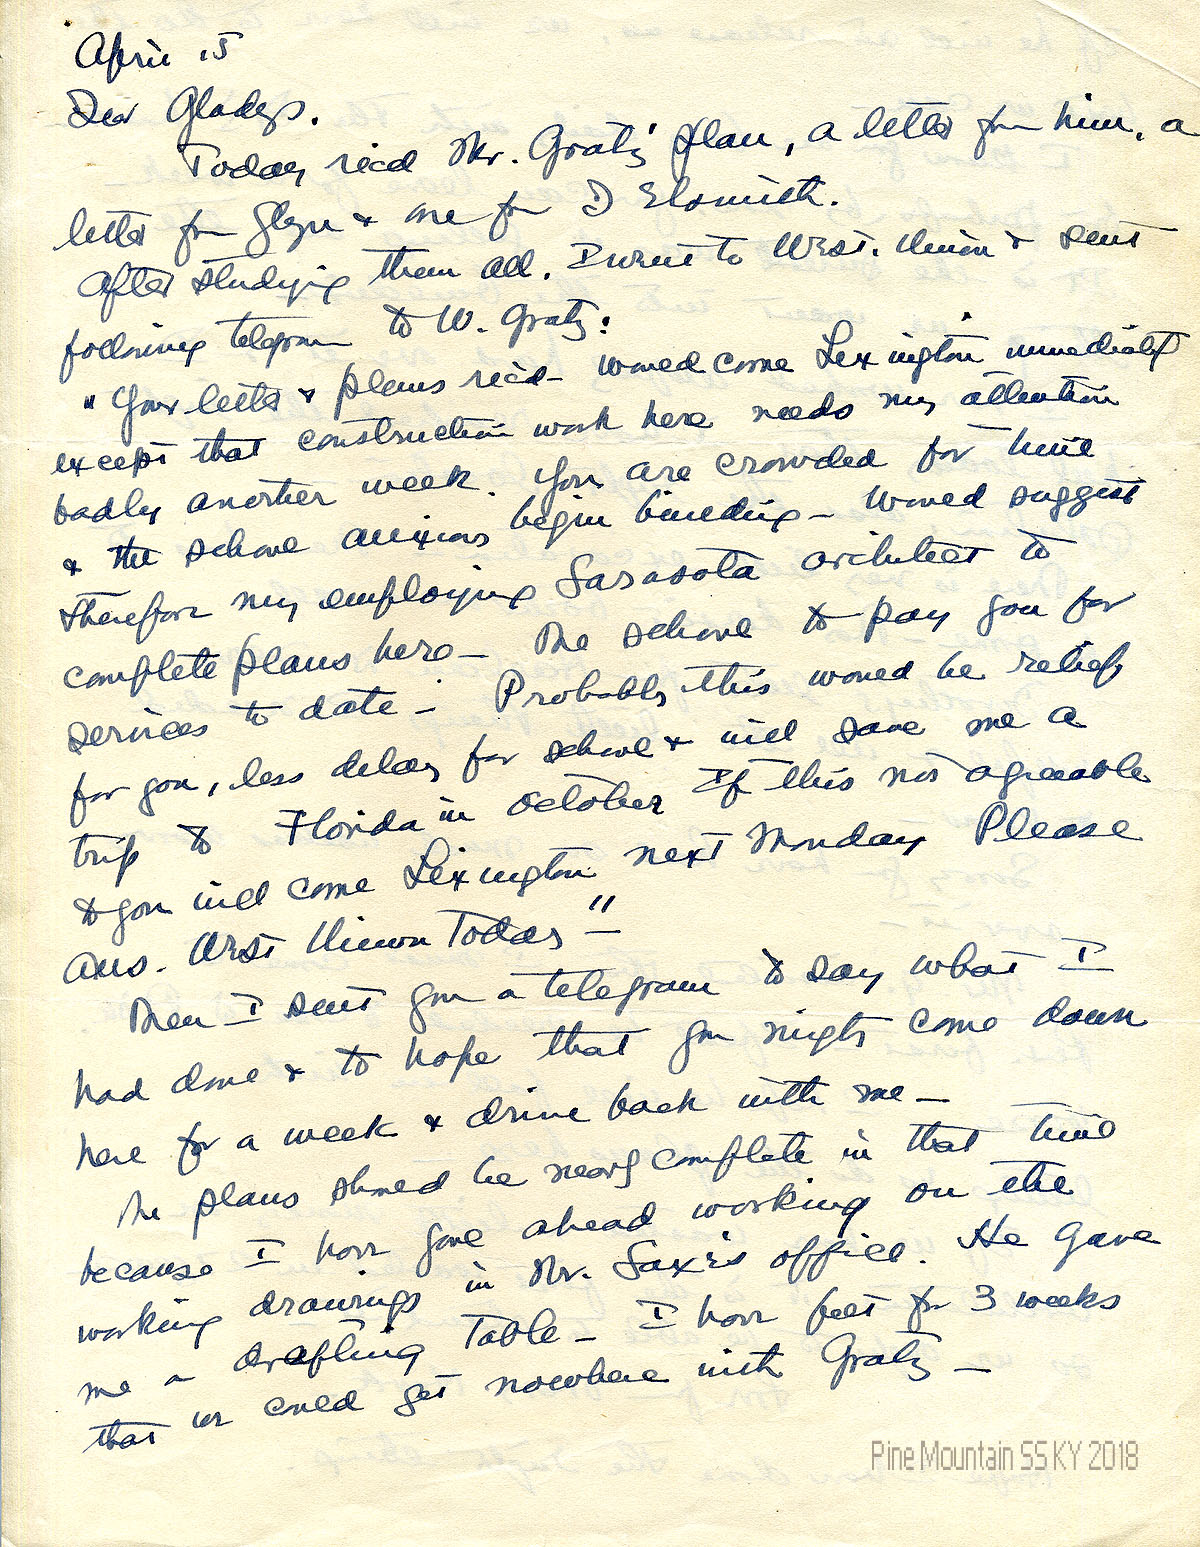 April 15
Dear Gladys.
Today recd Mr. Gratz' plan, a letter from him, a
letter from Glyn & one from D Elsmith.
After studying them all. I went to West. Union & sent
following telegram to W. Gratz:
"Your letter & plans recd – would come Lexington immediately
except that construction work here needs my attention
badly another week. You are crowded for time
& the school anxious begin building – would suggest
therefore my employing Sarasota architect to
complete plans here – The school to pay you for
services to date – Probably this would be relief
for you, less delay for school & will save me a
trip to Florida in October If this not agreeable
to you will come Lexington next Monday Please
ans. West Union Today" –
Then I sent you a telegram to say what I
had done & to hope that you might come down
here for a week & drive back with me –
The plans should be nearly complete in that time
because I have gone ahead working on the
working drawings in Mr. Saxe's office. He gave
me a drafting Table – I have felt for 3 weeks
that we could get nowhere with Gratz –
Pine Mountain SS KY 2018